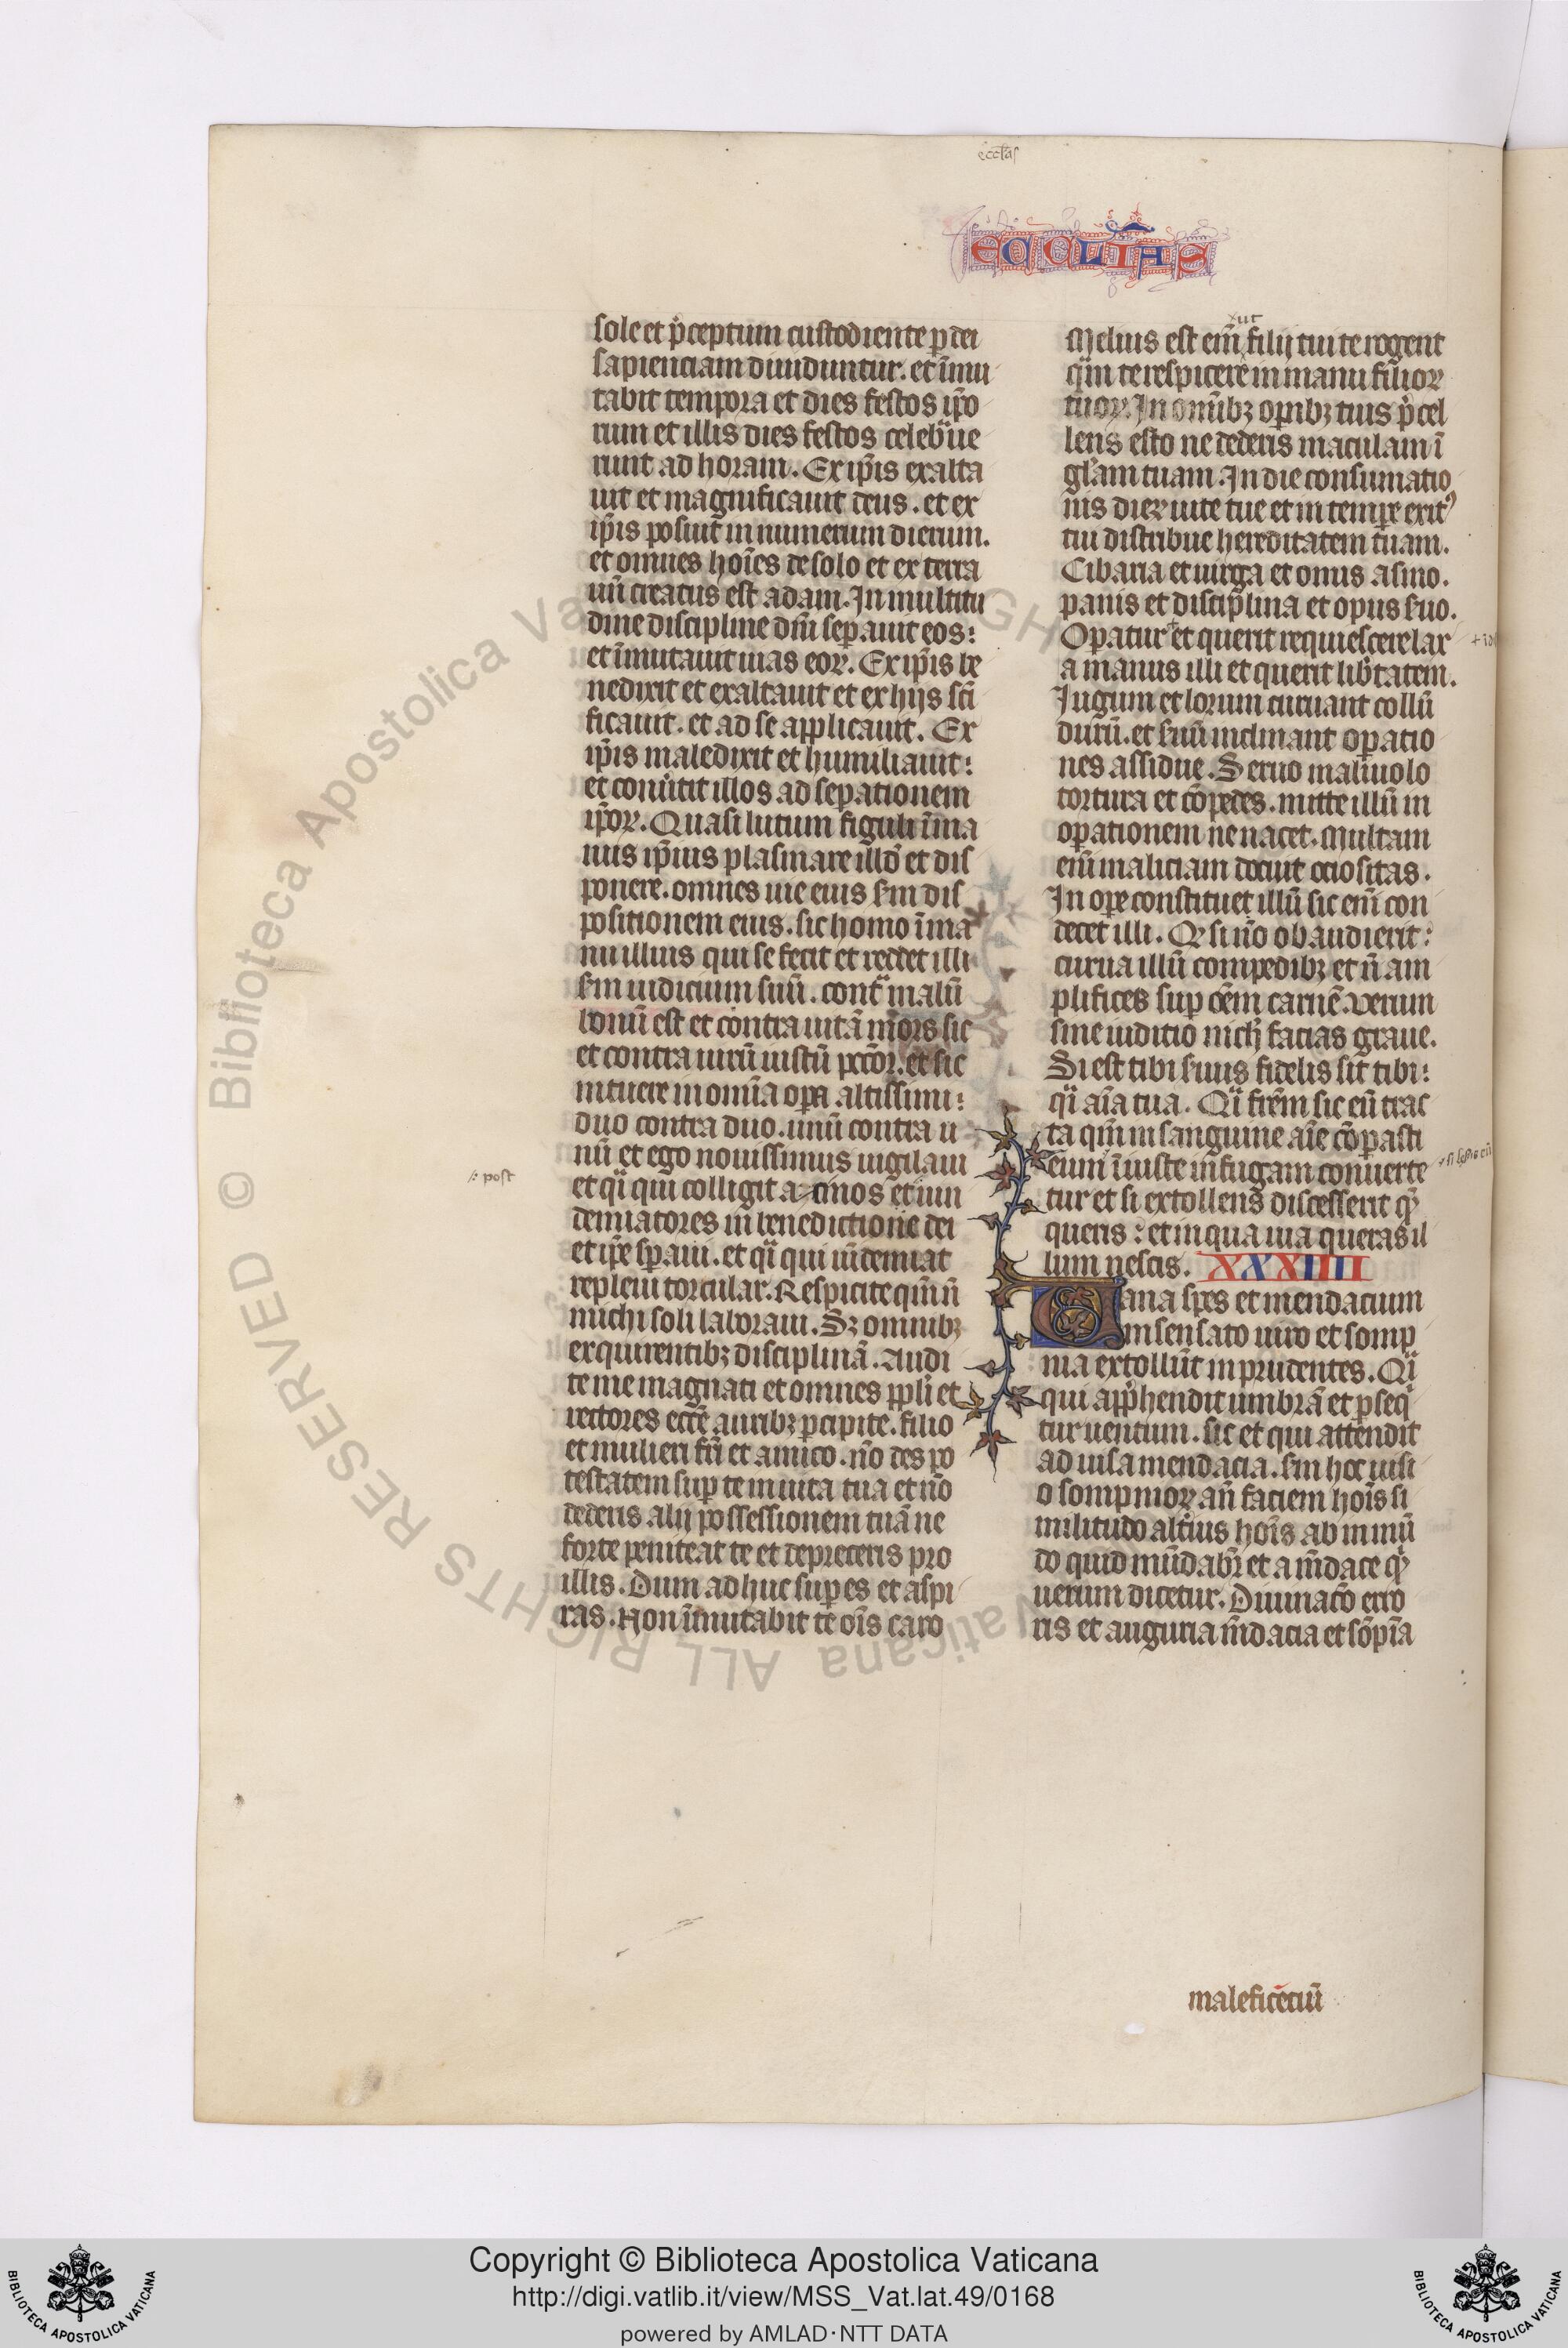 eccl̄as
ECCLĪAS
sole et p̓ceptum custodiente ꝑ dei
sapienciam diuiduntur. et īmu
tabit tempora et dies festos ip̄o
rum et illis dies festos celebᵃue
runt ad horam. Ex ip̄is exalta
uit et magnificauit deus. et ex
ip̄is posuit in numerum dierum.
et omnes hoīes de solo et ex terra
vn̄ creatus est adam. In multitu
dine discipline dn̄i seꝑauit eos:
et īmutauit uias eoꝝ. Ex ip̄is be
nedixit et exaltauit et ex hijs sc̄i
ficauit. et ad se applicauit. Ex
ip̄is maledixit et humiliauit:
et conu̓tit illos ad seꝑationem
ip̄oꝝ. Quasi lutum figuli ī ma
nus ip̄ius plasmare illd̓ et dis
ponere. omnes uie eius sm̄ dis
positionem eius. sic homo ī ma
nu illius qui se fecit et reddet illi
sm̄ iudicium suū. contᵃ malū
bonū est et contra uitā mors sic
et contra uirū iustū pecc̄or. et sic
intuere in omn̄ia oꝑa altissimi:
duo contra duo. unū contra u
nū et ego nouissimus uigilaui
⁒ post
et qᵃi qui colligit acinos et uin
demiatores in benedictione dei
et ip̄e sꝑaui. et qᵃi qui uīdemiat
repleui torcular. Respicite qm̄ n̄
michi soli laboraui. Sꝫ omnibꝫ
exquirentibꝫ disciplinā. Audi
te me magnati et omnes ppl̓i et
rectores eccē auribꝫ ꝑcipite. filio
et mulieri fr̄i et amico. nō des po
testatem suꝑ te in uita tua et nō
dederis alij possessionem tuā ne
forte peniteat te et depreceris pro
illis. Dum adhuc suꝑes et aspi
ras. Non īmutabit te oīs caro
ut
Melius est em̄ filij tui te rogent
qᵃm te respicere in manu filioꝝ
tuoꝝ. In omībꝫ oꝑibꝫ tuis p̓cel
lens esto ne dederis maculam ī
gl̓am tuam. In die consumatio
nis dieꝝ uite tue et in tempe exitꝰ
tui distribue hereditatem tuam.
Cibaria et uirga et onus asino.
panis et discip̄lina et opus s̓uo.
Oꝑatur et querit requiescere lax
a manus illi et querit lib̓tatem.
Iugum et lorum curuant collū
durū. et s̓uū inclinant oꝑatio
nes assidue. Seruo maliuolo
tortura et cōpedes. mitte illū in
oꝑationem ne uacet. Multam
em̄ maliciam docuit ociositas.
In oꝑe constituet illū sic em̄ con
decet illi. Qꝫ si nō obaudierit:
curua illū compedibꝫ et n̄ am
plifices suꝑ oēm carnē. Verum
sine iuditio nich̓ facias graue.
Si est tibi s̓uus fidelis sit tibi:
qᵃi aīa tua. Qᵃi fr̄em sic eū trac
ta qm̄ in sanguine aīe cōꝑasti
eum īiuste in fugam conuerte
tur et si extollens discesserit qᵉ
queris: et in qua uia queras il
lum nescis. XXXIIII
Uana spes et mendacium
insensato uiro et somp
nia extollūt inprudentes. Qᵃi
qui app̓hendit umbrā et ꝑseqⁱ
tur uentum. sic et qui attendit
ad uisa mendacia. sm̄ hoc uisi
o sompnioꝝ an̄ faciem hoīs si
militudo alt̓ius hoīs ab inmū
do quid mūdabr̄ et a mēdace qᵈ
uerum dicetur. Diuinatō erro
ris et auguria mēdacia et sōpnīa
maleficētiū
Copyright © Biblioteca Apostolica Vaticana
http://digi.vatlib.it/view/MSS_Vat.lat.49/0168
powered by AMLAD·NTT DATA
BIBLIOTECA APOSTOLICA VATICANA
BIBLIOTECA APOSTOLICA VATICANA